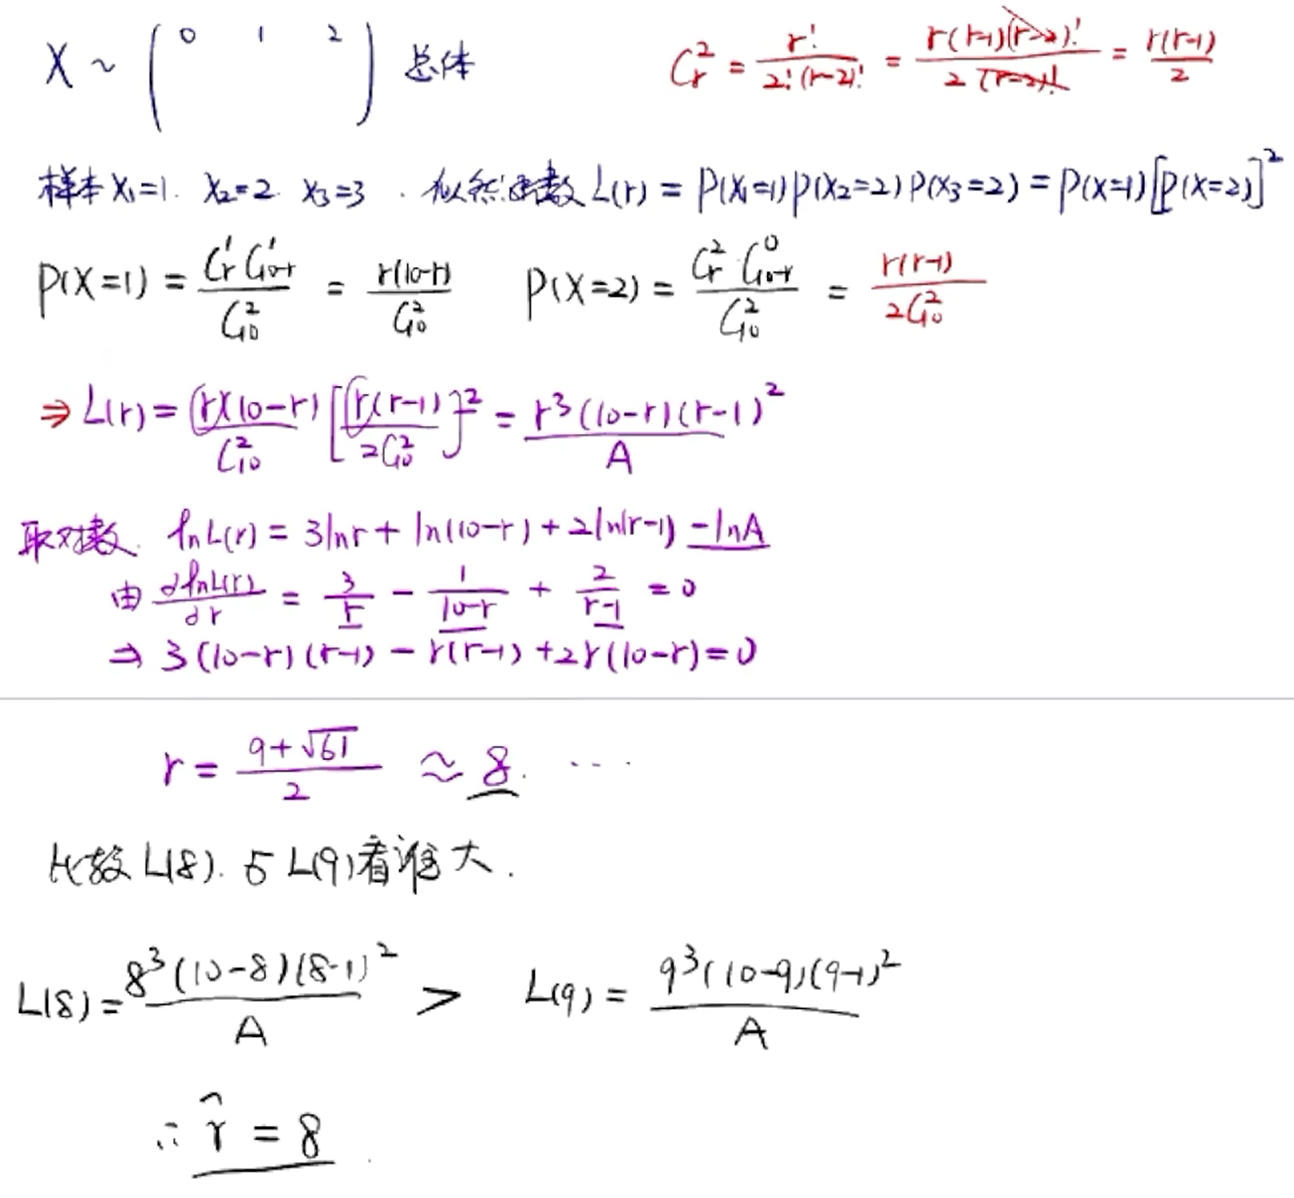 X ~ ( 0 1 2 ) 总体
C_r^2 = r!/(2!(r-2)!) = r(r-1)(r-2)!/(2(r-2)!) = r(r-1)/2
样本 X₁=1. X₂=2 X₃=3 . 似然函数 L(r) = P(X₁=1)P(X₂=2)P(X₃=2) = P(X=1)[P(X=2)]^2
P(X=1) = C_r^1 C_{10-r}^1/C_{10}^2 = r(10-r)/C_{10}^2 P(X=2) = C_r^2 · C_{10-r}^0/C_{10}^2 = r(r-1)/(2C_{10}^2)
⇒ L(r) = (r)(10-r)/C_{10}^2 [r(r-1)/(2C_{10}^2)]^2 = r^3(10-r)(r-1)^2/A
取对数. lnL(r) = 3lnr + ln(10-r) + 2ln(r-1) -lnA
由 dlnL(r)/dr = 3/r - 1/(10-r) + 2/(r-1) = 0
⇒ 3(10-r)(r-1) - r(r-1) + 2r(10-r) = 0
r = (9+√61)/2 ≈ 8. ...
比较 L(8). 与 L(9) 看谁大.
L(8) = 8^3(10-8)(8-1)^2/A > L(9) = 9^3(10-9)(9-1)^2/A
∴ r̂ = 8